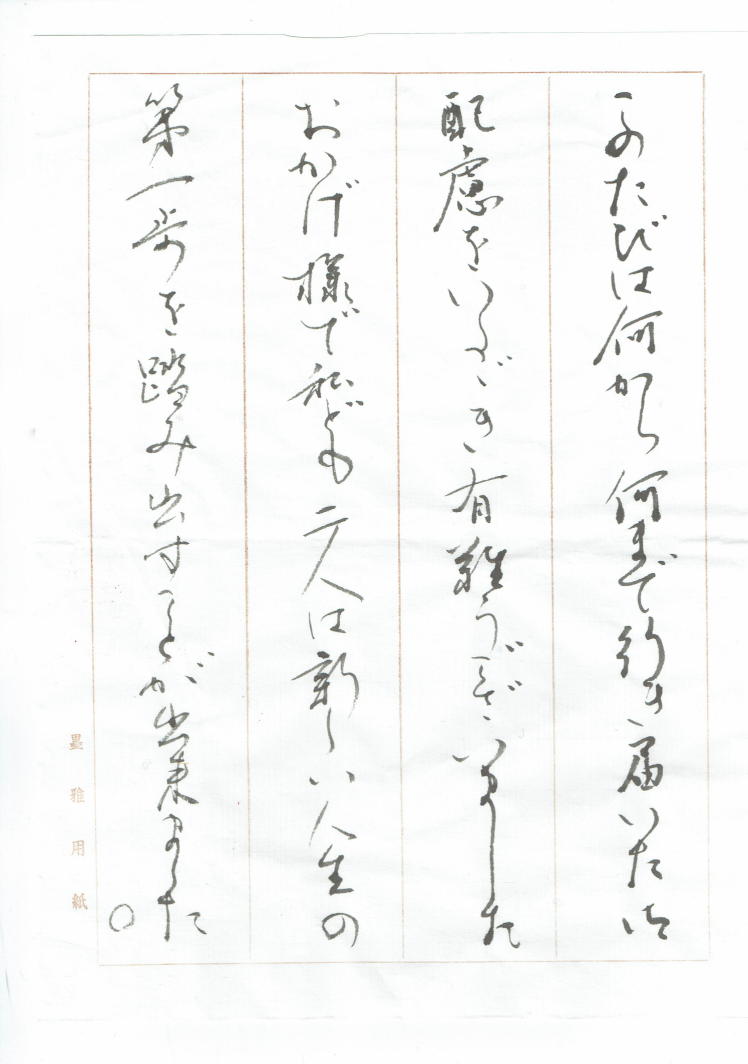 このたびは何から何まで行き届いた御
配慮をいただき有難うございました
おかげ様で私ども二人は新しい人生の
第一歩を踏み出すことが出来ました。
墨雅用紙